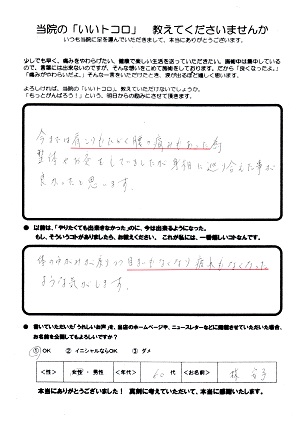 当院の「いいトコロ」 教えてくださいませんか
いつも当院に足を運んでいただきまして、本当にありがとうございます。
少しでも早く、痛みをやわらげたい。健康で楽しい生活を送っていただきたい。施術中は集中しているので、言葉には出来ないのですが、そんな想いをこめて施術をしております。だから「良くなったよ。」「痛みがやわらいだよ。」そんな一言をいただけたとき、涙が出るほど嬉しく思います。
よろしければ、当院の「いいトコロ」、教えていただけないでしょうか。
「もっとがんばろう！」という、明日からの励みにさせて頂きます。
今までは肩こりもひどく腰の痛みもあった為
出来て
● 以前は、「やりたくても出来きなかった」のに、今は出来るようになった。
もし、そういうコトがありましたら、お教えください。これが私には、一番嬉しいコトなんです。
体のゆがみが
目まいもなくなり疲れもなくなった
ような気がします。
● 書いていただいた「うれしいお声」を、当店のホームページや、ニュースレターなどに掲載させていただいた場合、
お名前を公開してもよろしいですか？
① OK ② イニシャルならOK ③ ダメ
＜性＞ 女性・男性 ＜年代＞ 60代 ＜お名前＞
本当にありがとうございました！ 真剣に考えていただいて、本当に感謝いたします。